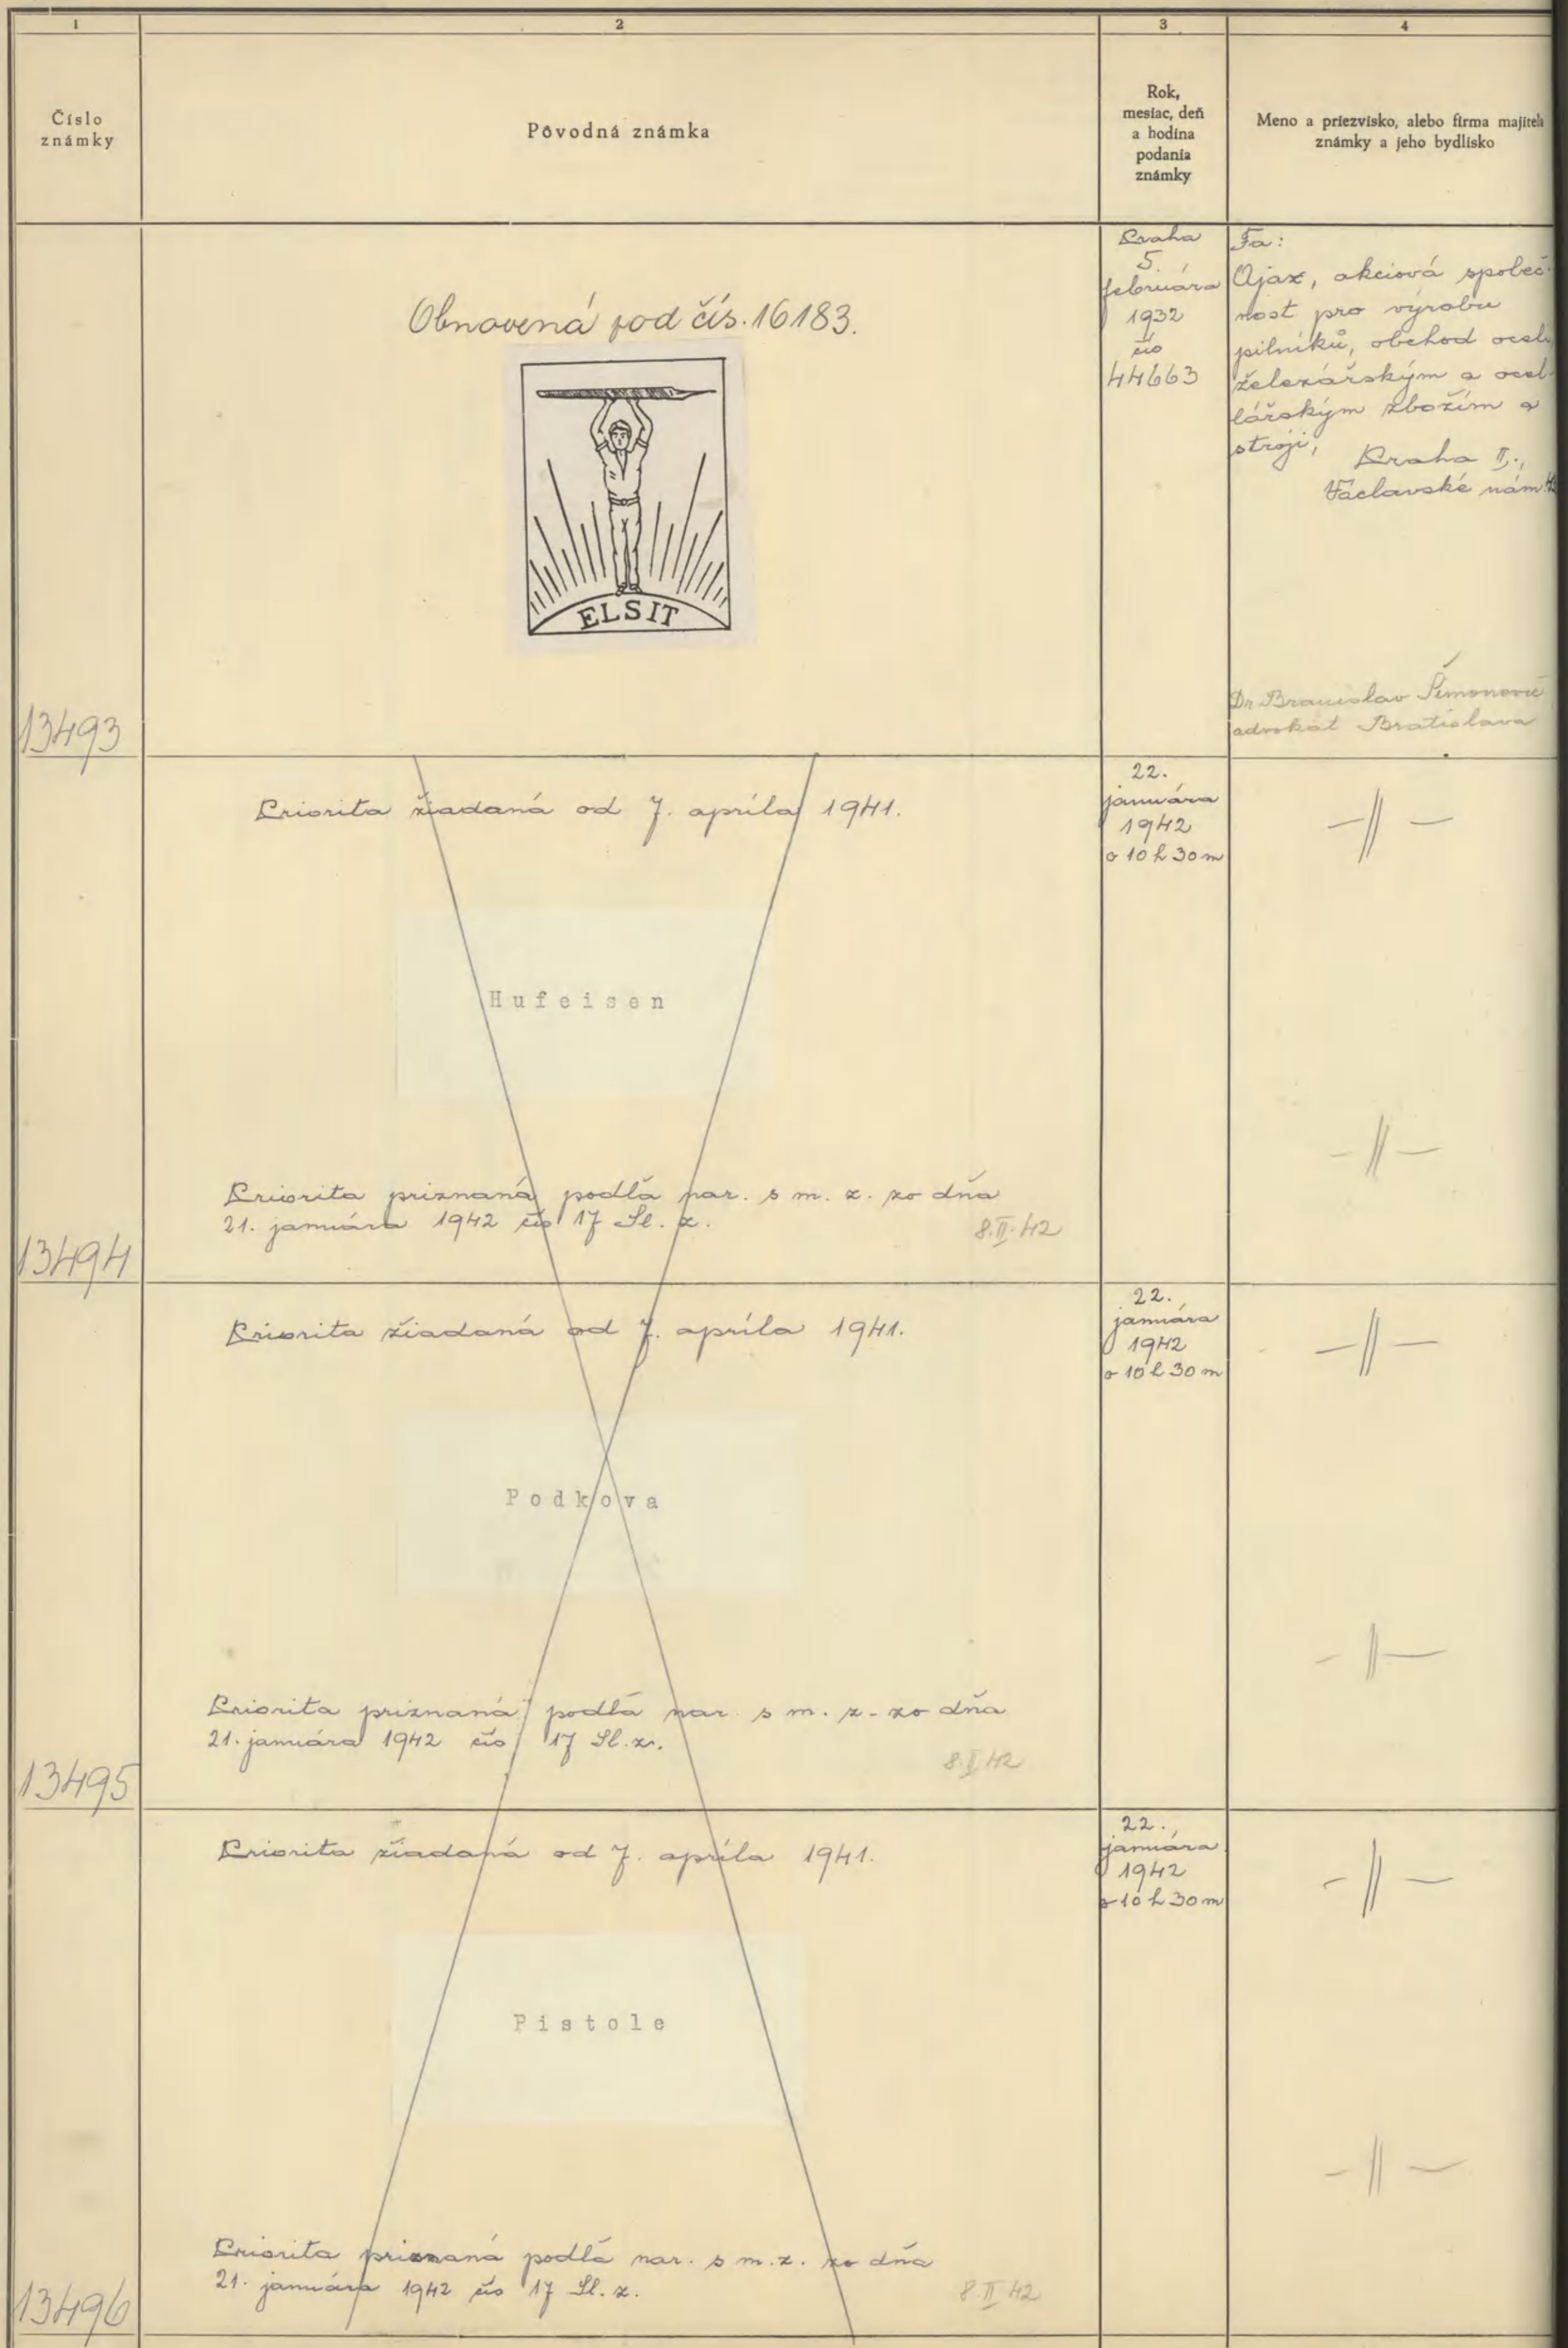 1
2
3
4
Číslo
známky
Pôvodná známka
Rok,
mesiac, deň
a hodina
podania
známky
Meno a priezvisko, alebo firma majiteľa
známky a jeho bydlisko
13493
Obnovená pod čís. 16183.
ELSIT
Praha
5.
februára
1932
čís
44663
Fa:
Ajax, akciová společ-
nost pro výrobu
pilníků, obchod ocelí,
železářským a ocel-
lářským zbožím a
stroji,
Praha II.,
Václavské nám.
Dr Branislav Šimonovič
advokát Bratislava
13494
Priorita žiadaná od 7. apríla 1941.
Hufeisen
Priorita priznaná podľa nar. s m. z. zo dňa
21. januára 1942 čís 17 Sl. z.
8.II.42
22.
januára
1942
o 10 h 30 m
-||-
-||-
13495
Priorita žiadaná od 7. apríla 1941.
Podkova
Priorita priznaná podľa nar. s m. z. zo dňa
21. januára 1942 čís 17 Sl. z.
8.II.42
22.
januára
1942
o 10 h 30 m
-||-
-||-
13496
Priorita žiadaná od 7. apríla 1941.
Pistole
Priorita priznaná podľa nar. s m. z. zo dňa
21. januára 1942 čís 17 Sl. z.
8.II.42
22.
januára
1942
o 10 h 30 m
-||-
-||-